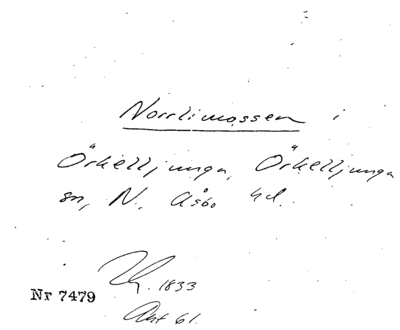 Norrlimossen i
Örkelljunga, Örkelljunga
sn, N. Åsbo hd.
1833
Nr 7479
Akt 61.